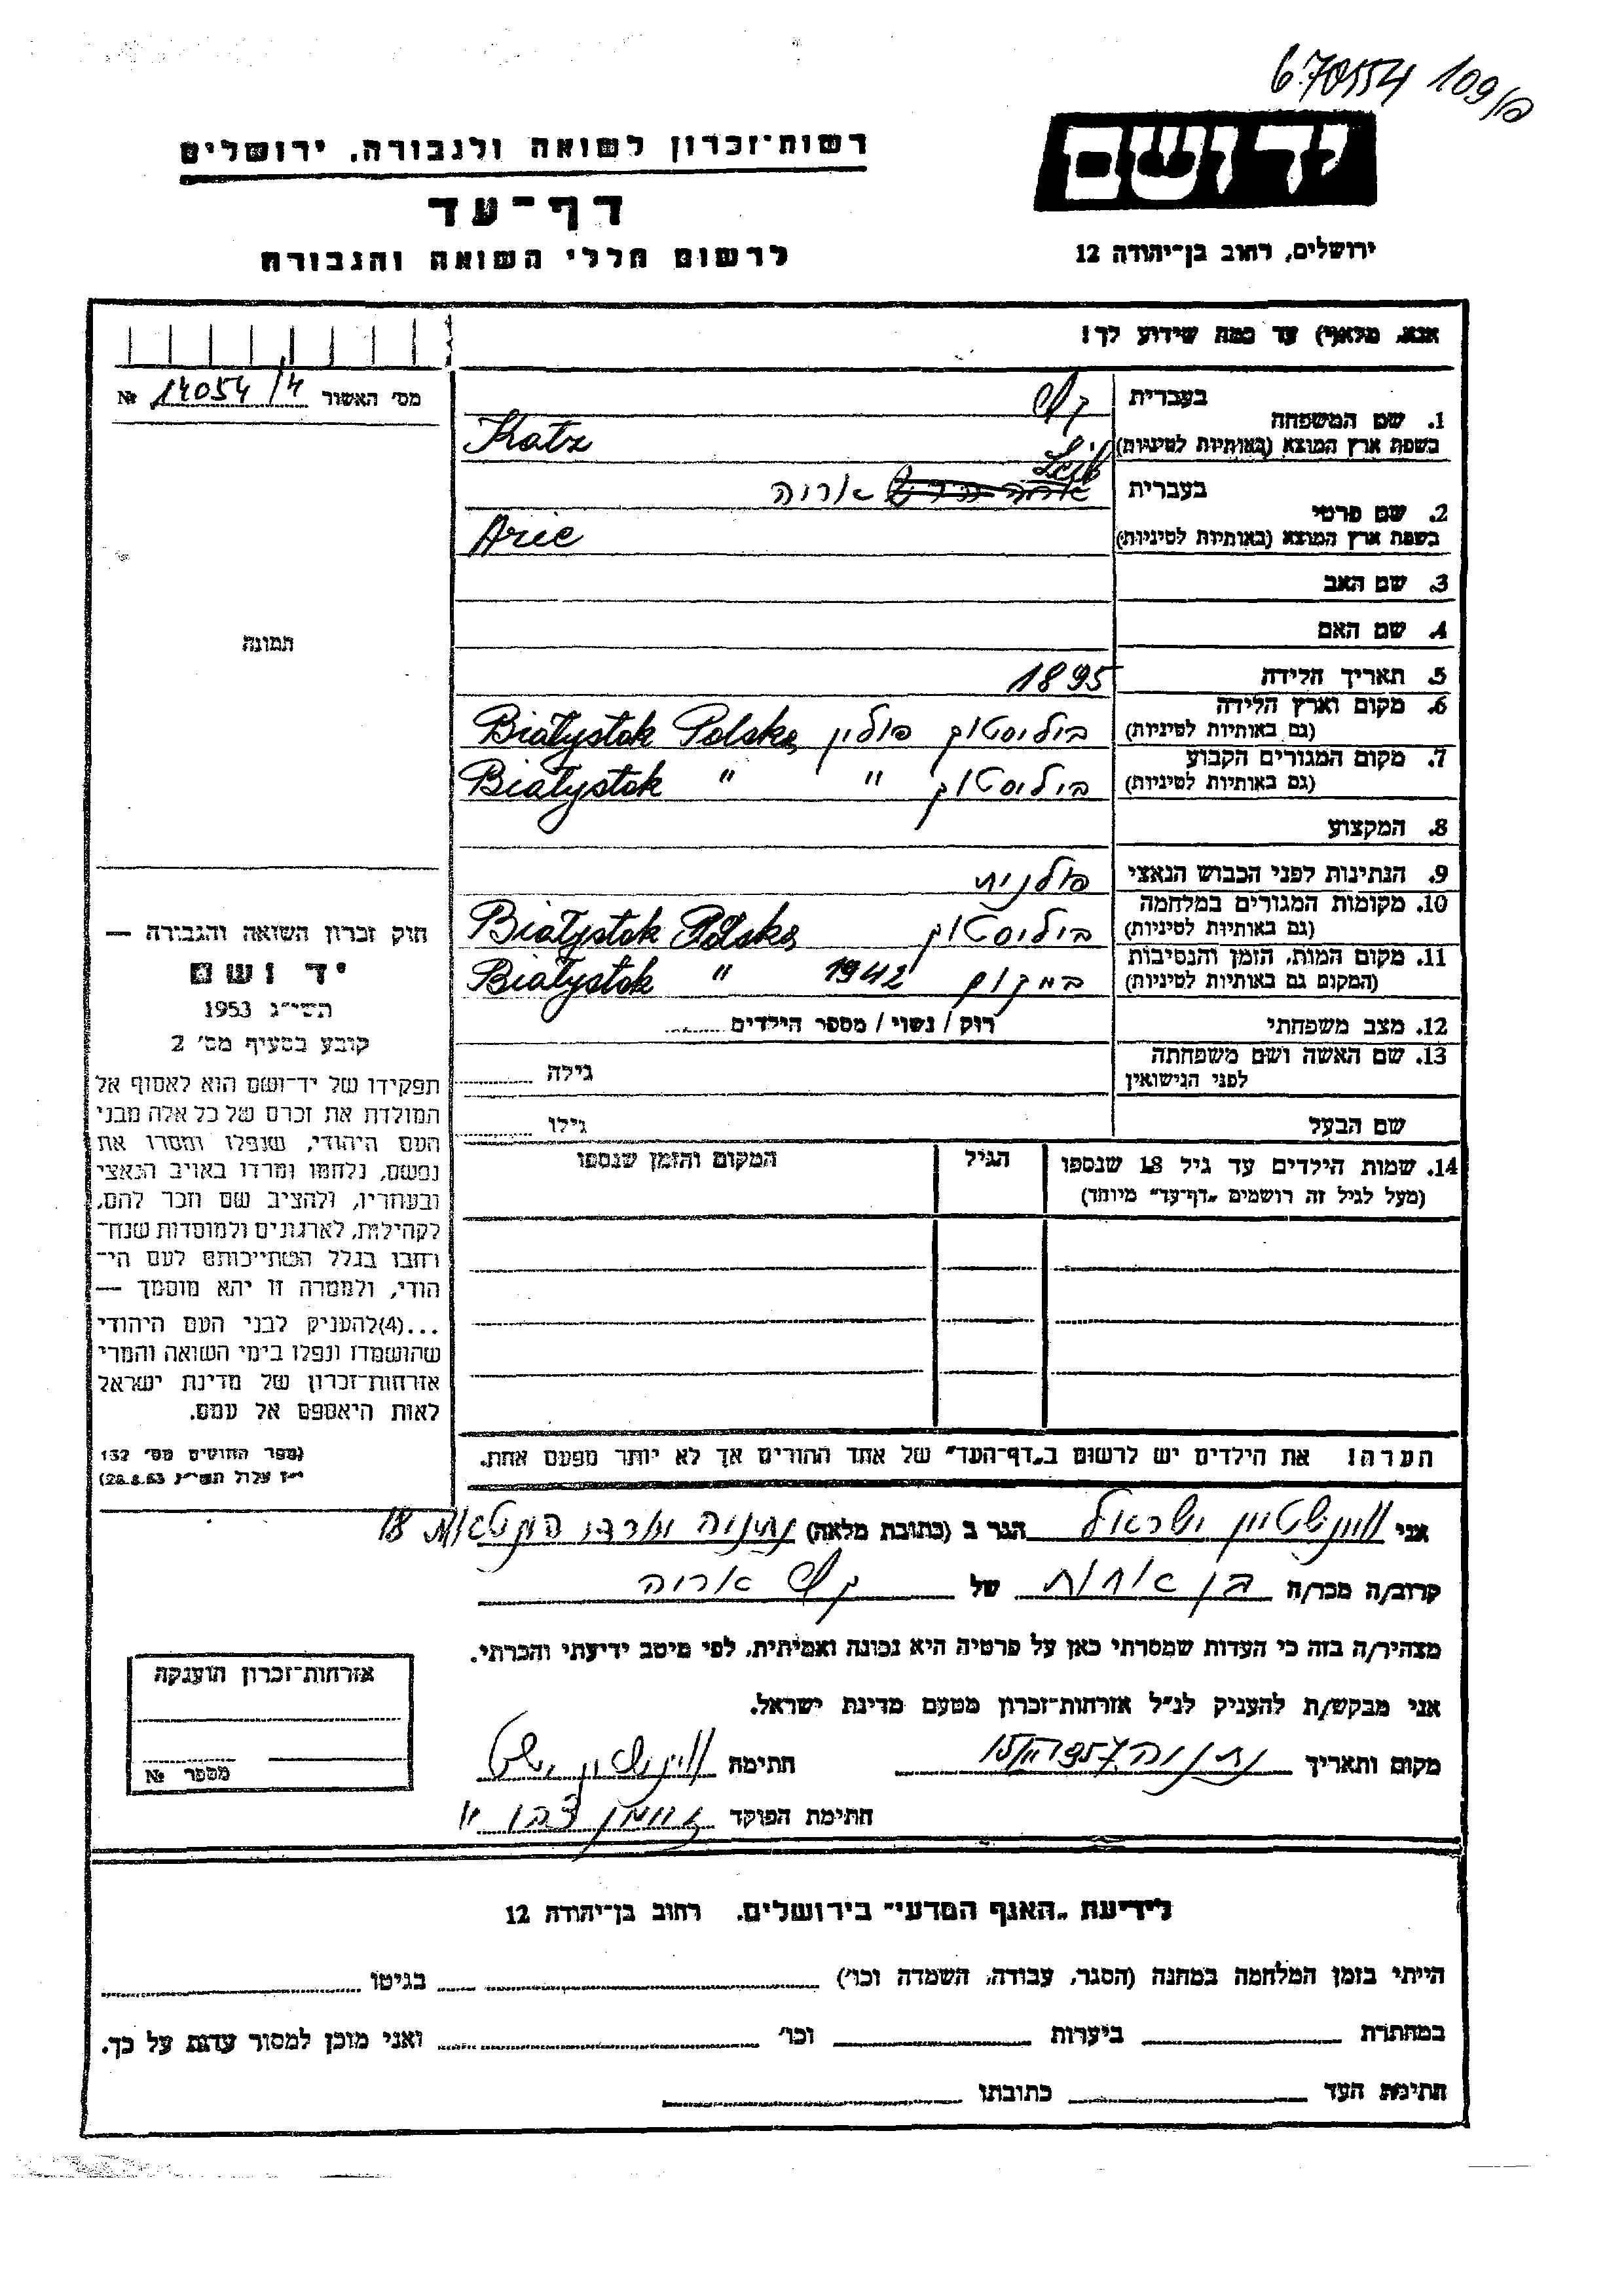 670554 109/
רשות־זכרון לשואה ולגבורה, ירושלים
יד ושם
דף־עד
לרשום חללי השואה והגבורה
ירושלים, רחוב בן־יהודה 12
אנא, מלא(י) עד כמה שידוע לך!
מס׳ האשור 14054/4 №
תמונה
חוק זכרון השואה והגבורה —
יד ושם
תשי״ג 1953
קובע בסעיף מס׳ 2
תפקידו של יד־ושם הוא לאסוף אל
המולדת את זכרם של כל אלה מבני
העם היהודי, שנפלו ומסרו את
נפשם, נלחמו ומרדו באויב הנאצי
ובעוזריו, ולהציב שם וזכר להם,
לקהילות, לארגונים ולמוסדות שנח־
רחבו בגלל השתייכותם לעם הי־
הודי, ולמטרה זו יהא מוסמך —
...(4)להעניק לבני העם היהודי
שהושמדו ונפלו בימי השואה והמרי
אזרחות־זכרון של מדינת ישראל
לאות היאספם אל עמם.
(ספר החוקים מס׳ 132
י״ז אלול תשי״ג 28.8.53)
1. שם המשפחה בעברית כץ
בשפת ארץ המוצא (באותיות לטיניות) Katz
Leib
2. שם פרטי בעברית אריה
בשפת ארץ המוצא (באותיות לטיניות) Arie
3. שם האב
4. שם האם
5. תאריך הלידה 1895
6. מקום וארץ הלידה (גם באותיות לטיניות) ביליסטוק פולין Białystok Polska
7. מקום המגורים הקבוע (גם באותיות לטיניות) ביליסטוק " Białystok "
8. המקצוע
9. הנתינות לפני הכבוש הנאצי פולנית
10. מקומות המגורים במלחמה (גם באותיות לטיניות) ביליסטוק Białystok Polska
11. מקום המות, הזמן והנסיבות (המקום גם באותיות לטיניות) במקום 1942 Białystok "
12. מצב משפחתי רוק / נשוי / מספר הילדים
13. שם האשה ושם משפחתה לפני הנישואין גילה
שם הבעל גילו
14. שמות הילדים עד גיל 18 שנספו הגיל המקום והזמן שנספו
(מעל לגיל זה רושמים „דף־עד״ מיוחד)
הערה! את הילדים יש לרשום ב„דף־העד״ של אחד ההורים אך לא יותר מפעם אחת.
אני ויינשטיין ישראל הגר ב (כתובת מלאה) נתניה 18
קרוב/ה מכר/ה בן אחות של כץ אריה
מצהיר/ה בזה כי העדות שמסרתי כאן על פרטיה היא נכונה ואמיתית, לפי מיטב ידיעתי והכרתי.
אני מבקש/ת להעניק לנ״ל אזרחות־זכרון מטעם מדינת ישראל.
מקום ותאריך נתניה חתימה
חתימת הפוקד
אזרחות־זכרון הוענקה
מספר №
לידיעת „האגף המדעי״ בירושלים, רחוב בן־יהודה 12
הייתי בזמן המלחמה במחנה (הסגר, עבודה, השמדה וכו׳) בגיטו
במחתרת ביערות וכו׳ ואני מוכן למסור עדות על כך.
חתימת העד כתובתו